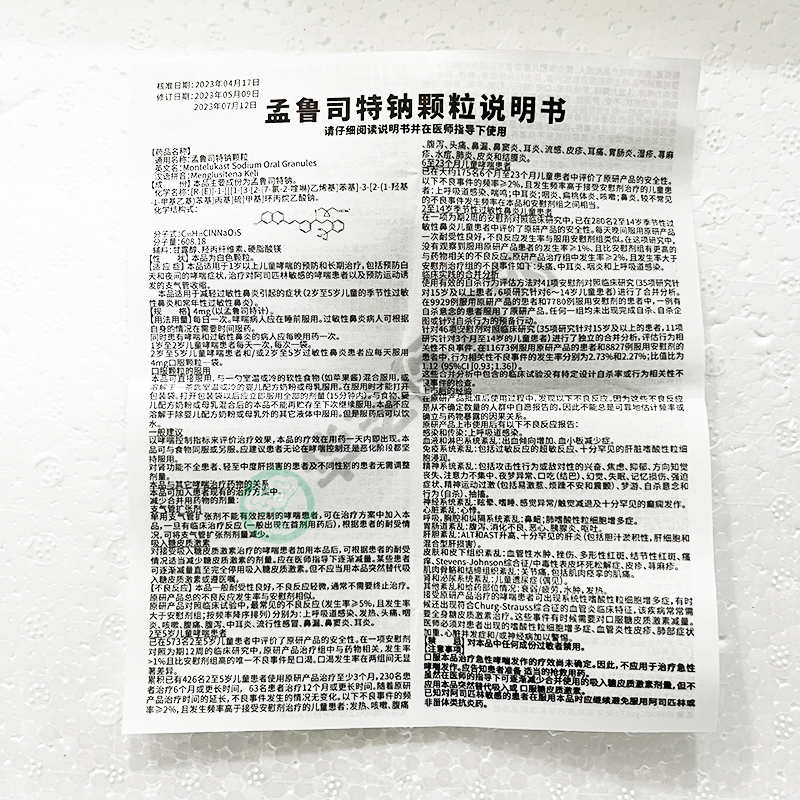 核准日期:2023年04月17日
修订日期:2023年05月09日
2023年07月12日
孟鲁司特钠颗粒说明书
请仔细阅读说明书并在医师指导下使用
【药品名称】
通用名称:孟鲁司特钠颗粒
英文名:Montelukast Sodium Oral Granules
汉语拼音:Menglusitena Keli
【成 份】本品主要成份为孟鲁司特钠。
化学名称:[R-(E)]-1-[[[1-[3-[2-(7-氯-2-喹啉)乙烯基]苯基]-3-[2-(1-羟基
-1-甲基乙基)苯基]丙基]硫]甲基]环丙烷乙酸钠。
化学结构式:
分子式:C₃₅H₃₅ClNNaO₃S
分子量:608.18
辅料:甘露醇、羟丙纤维素、硬脂酸镁
【性 状】本品为白色颗粒。
【适应症】本品适用于1岁以上儿童哮喘的预防和长期治疗,包括预防白
天和夜间的哮喘症状,治疗对阿司匹林敏感的哮喘患者以及预防运动诱
发的支气管收缩。
本品适用于减轻过敏性鼻炎引起的症状(2岁至5岁儿童的季节性过敏
性鼻炎和常年性过敏性鼻炎)。
【规 格】4mg(以孟鲁司特计)。
【用法用量】每日一次。哮喘病人应在睡前服用。过敏性鼻炎病人可根据
自身的情况在需要时间服药。
同时患有哮喘和过敏性鼻炎的病人应每晚用药一次。
1岁至2岁儿童哮喘患者每天一次,每次一袋。
2岁至5岁儿童哮喘患者和/或2岁至5岁过敏性鼻炎患者应每天服用
4mg口服颗粒一袋。
口服颗粒的服用
本品可直接服用、与一勺室温或冷的软性食物(如苹果酱)混合服用,或
溶解于一茶匙室温或冷的婴儿配方奶粉或母乳服用。在服用时才能打开
包装袋。打开包装袋以后应立即服用全部的剂量(15分钟内)。与食物、婴
儿配方奶粉或母乳混合后的本品不能再贮存至下次继续服用。本品不应
溶解于除婴儿配方奶粉或母乳外的其它液体中服用。但是服药后可以饮
水。
一般建议
以哮喘控制指标来评价治疗效果,本品的疗效在用药一天内即出现。本
品可与食物同服或另服。应建议患者无论在哮喘控制还是恶化阶段都坚
持服用。
对肾功能不全患者、轻至中度肝损害的患者及不同性别的患者无需调整
剂量。
本品与其它哮喘治疗药物的关系
本品可加入患者现有的治疗方案中。
减少合并用药物的剂量:
支气管扩张剂
单用支气管扩张剂不能有效控制的哮喘患者,可在治疗方案中加入本
品,一旦有临床治疗反应(一般出现在首剂用药后),根据患者的耐受情
况,可将支气管扩张剂剂量减少。
吸入糖皮质激素
对接受吸入糖皮质激素治疗的哮喘患者加用本品后,可根据患者的耐受
情况适当减少糖皮质激素的剂量。应在医师指导下逐渐减量。某些患者
可逐渐减量直至完全停用吸入糖皮质激素。但不应当用本品突然替代吸
入糖皮质激素或遵医嘱。
【不良反应】本品一般耐受性良好,不良反应轻微,通常不需要终止治疗。
原研产品总的不良反应发生率与安慰剂相似。
原研产品对照临床试验中,最常见的不良反应(发生率≥5%,且发生率
大于安慰剂组;按频率降序排列)分别为:上呼吸道感染、发热、头痛、咽
炎、咳嗽、腹痛、腹泻、中耳炎、流行性感冒、鼻漏、鼻窦炎、耳炎。
2至5岁儿童哮喘患者
已在573名2至5岁儿童患者中评价了原研产品的安全性。在一项安慰剂
对照为期12周的临床研究中,原研产品治疗组中与药物相关,发生率
>1%且比安慰剂组高的唯一不良事件是口渴。口渴发生率在两组间无显
著差异。
累积已有426名2至5岁儿童患者使用原研产品治疗至少3个月,230名患
者治疗6个月或更长时间,63名患者治疗12个月或更长时间,随着原研
产品治疗时间的延长,不良事件发生的情况无变化。以下不良事件的频
率≥2%,且发生频率高于接受安慰剂治疗的儿童患者:发热、咳嗽、腹痛
、腹泻、头痛、鼻漏、鼻窦炎、耳炎、流感、皮疹、耳痛、胃肠炎、湿疹、荨麻
疹、水痘、肺炎、皮炎和结膜炎。
6至23个月儿童哮喘患者
已在大约175名6个月至23个月儿童患者中评价了原研产品的安全性。
以下不良事件的频率≥2%,且发生频率高于接受安慰剂治疗的儿童患
者:上呼吸道感染、喘鸣;中耳炎;咽炎、扁桃体炎、咳嗽;鼻炎。较不常见
的不良事件发生频率在本品和安慰剂组之间相当。
2至14岁季节性过敏性鼻炎儿童患者
在一项为期2周的安慰剂对照临床研究中,已在280名2至14岁季节性过
敏性鼻炎儿童患者中评价了原研产品的安全性。每天晚间服用原研产品
一次耐受性良好,不良反应发生率与服用安慰剂组类似。在这项研究中,
没有观察到服用原研产品患者中发生率≥1%、且比安慰剂组有更高的
与药物相关的不良反应。原研产品治疗组中发生率≥2%、且发生率大于
安慰剂治疗组的不良事件如下:头痛、中耳炎、咽炎和上呼吸道感染。
临床实践的合并分析
使用有效的自杀行为评估方法对41项安慰剂对照临床研究(35项研究针
对15岁及以上患者,6项研究针对6~14岁儿童患者)进行了合并分析。
在9929例服用原研产品的患者和7780例服用安慰剂的患者中,一例有
自杀意念的患者服用了原研产品。任何一组均未出现完成自杀、自杀企
图或针对自杀行为的预备行动。
针对46项安慰剂对照临床研究(35项研究针对15岁及以上的患者,11项
研究针对3个月至14岁的儿童患者)进行了独立的合并分析,评估行为相
关性不良事件。在11673例服用原研产品的患者和8827例服用安慰剂的
患者中,行为相关性不良事件的发生率分别为2.73%和2.27%;比值比为
1.12 (95%CI [0.93;1.36])。
这些合并分析中包含的临床试验没有特定设计自杀率或行为相关性不
良事件的检查。
上市后的经验
在原研产品批准后使用过程中,发现以下不良反应。因为这些不良反应
是从不确定数量的人群中自愿报告的,因此不能总是可靠地估计频率或
确立与药物暴露的因果关系。
原研产品上市使用后有以下不良反应报告:
感染和传染:上呼吸道感染。
血液和淋巴系统紊乱:出血倾向增加、血小板减少症。
免疫系统紊乱:包括过敏反应的超敏反应、十分罕见的肝脏嗜酸性粒细
胞浸润。
精神系统紊乱:包括攻击性行为或敌对性的兴奋、焦虑、抑郁、方向知觉
丧失、注意力不集中、夜梦异常、口吃(结巴)、幻觉、失眠、记忆损伤、强迫
症症状、精神运动过激(包括易激惹、烦躁不安和震颤)、梦游、自杀意念和
行为(自杀)、抽搐。
神经系统紊乱:眩晕、嗜睡、感觉异常/触觉减退及十分罕见的癫痫发作。
心脏紊乱:心悸。
呼吸、胸腔和纵隔系统紊乱:鼻衄;肺嗜酸性粒细胞增多症。
胃肠道紊乱:腹泻、消化不良、恶心、胰腺炎、呕吐。
肝胆紊乱:ALT和AST升高、十分罕见的肝炎(包括胆汁淤积性,肝细胞和
混合型肝损害)。
皮肤和皮下组织紊乱:血管性水肿、挫伤、多形性红斑、结节性红斑、瘙
痒、Stevens-Johnson综合征/中毒性表皮坏死松解症、皮疹、荨麻疹。
肌肉骨骼和结缔组织紊乱:关节痛、包括肌肉痉挛的肌痛。
肾和泌尿系统紊乱:儿童遗尿症(偶见)。
其他紊乱和给药部位情况:衰弱/疲劳、水肿、发热。
接受原研产品治疗的哮喘患者可出现系统性的嗜酸性粒细胞增多症,有时
候还出现符合Churg-Strauss综合征的血管炎临床特征,该疾病常常需
要全身糖皮质激素治疗。这些事件有时候需要对口服糖皮质激素减量。
医师必须对患者出现的嗜酸性粒细胞增多症、血管炎性皮疹、肺部症状
加重、心脏并发症和/或神经病加以警惕。
【禁 忌】对本品中任何成份过敏者禁用。
【注意事项】
口服本品治疗急性哮喘发作的疗效尚未确定。因此,不应用于治疗急性
哮喘发作。应告知患者准备适当的抢救用药。
虽然在医师的指导下可逐渐减少合并使用的吸入糖皮质激素剂量,但不
应用本品突然替代吸入或口服糖皮质激素。
已知对阿司匹林敏感的患者在服用本品时应继续避免服用阿司匹林或
非甾体类抗炎药。